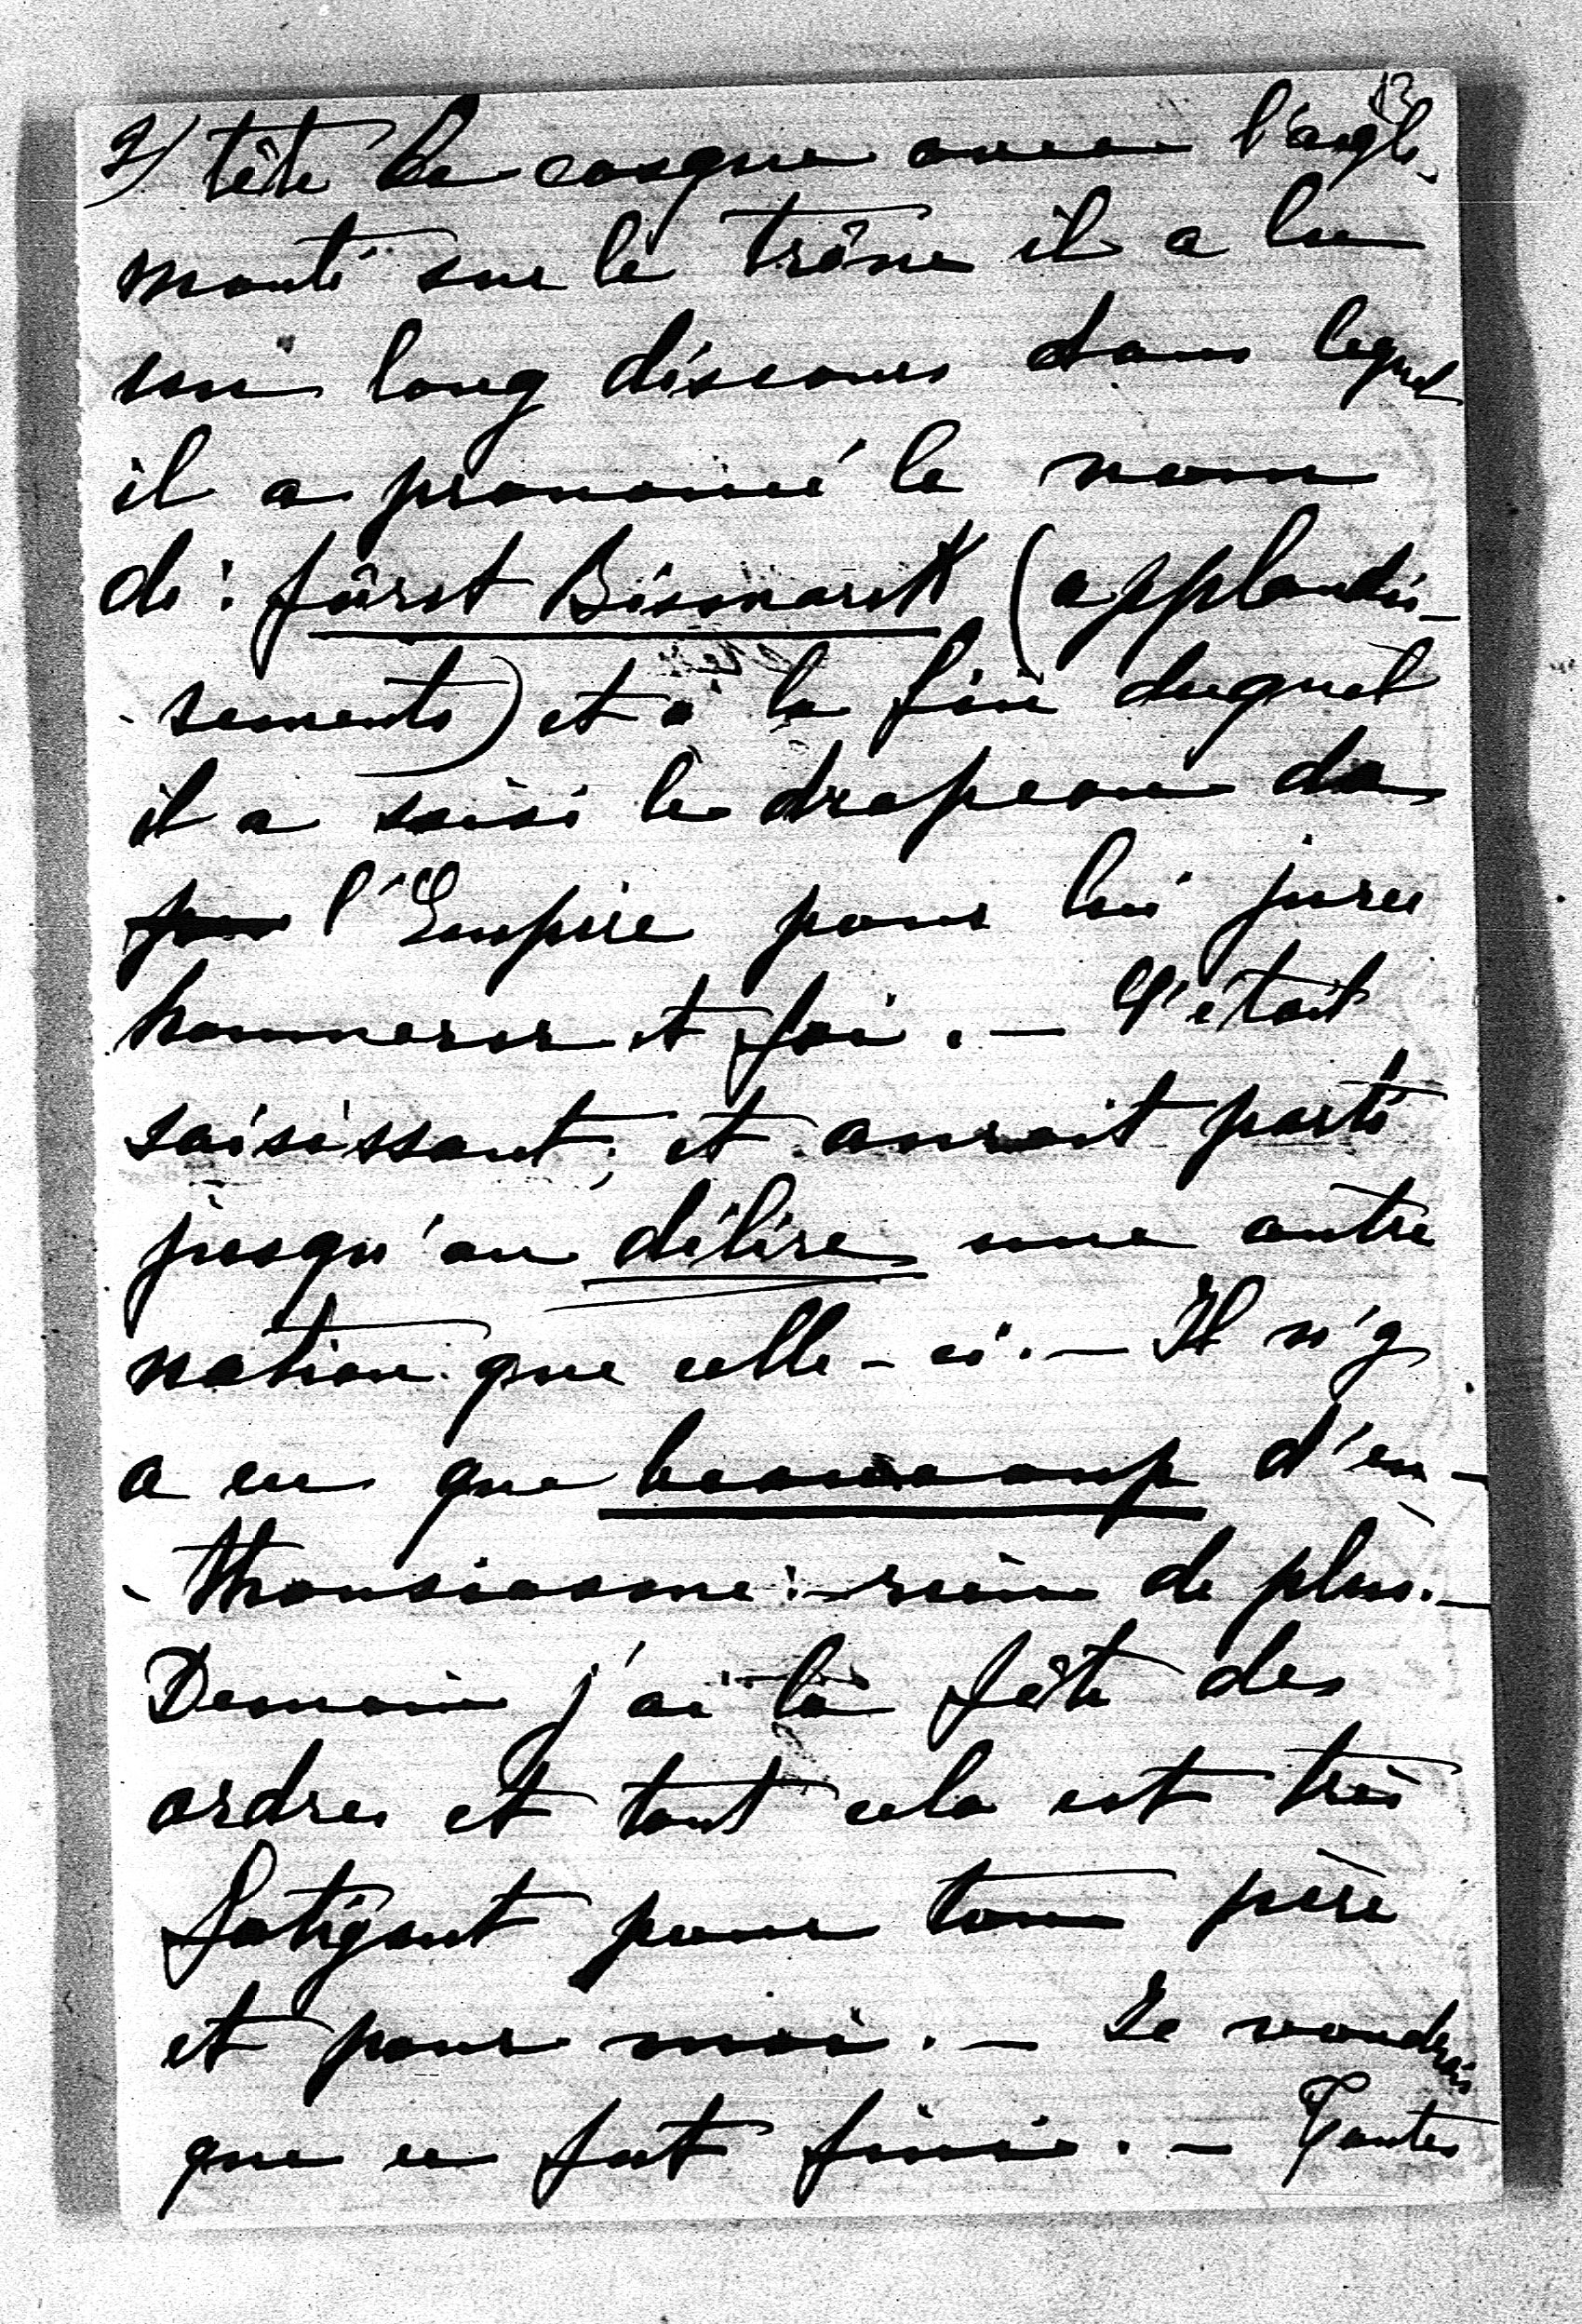 2/ tête le casque avec l'aigle,
monté sur le trône il a lu
un long discours dans lequel
il a prononcé le nom
de : fürst Bismarck (applaudis-
-sements) et à la fin duquel
il a saisi le drapeau de
l'Empire pour lui jurer
honneur et foi. — C'était
saisissant, et aurait porté
jusqu'au délire une autre
nation que celle-ci. — Il n'y
a eu que beaucoup d'en-
-thousiasme : rien de plus. —
Demain j'ai la fête des
ordres et tout cela est très
fatigant pour ton père
et pour moi. — Je voudrais
que ce fut fini. — Toutes